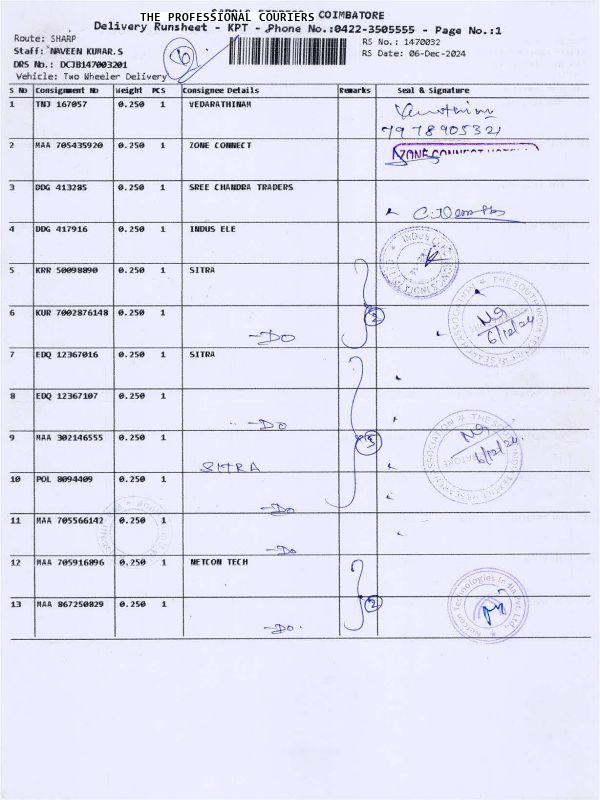 THE PROFESSIONAL COURIERS COIMBATORE
Delivery Runsheet - KPT - Phone No.:0422-3505555 - Page No.:1
Route: SHARP
RS No.: 1470032
Staff: NAVEEN KUMAR.S
6
RS Date: 06-Dec-2024
DRS No.: DCJB147003201
Vehicle: Two Wheeler Delivery
S No Consignment No Weight PCS Consignee Details Remarks Seal & Signature
1 TNJ 167057 0.250 1 VEDARATHINAM
7978905321
2 MAA 705435920 0.250 1 ZONE CONNECT ZONE CONNECT
3 DDG 413285 0.250 1 SREE CHANDRA TRADERS
4 DDG 417916 0.250 1 INDUS ELE
5 KRR 50098890 0.250 1 SITRA
6 KUR 7002876148 0.250 1 -DO 2
N9
6/12/24
7 EDQ 12367016 0.250 1 SITRA
8 EDQ 12367107 0.250 1 -DO
9 MAA 302146555 0.250 1 SITRA 5
N9
6/12/24
10 POL 8094409 0.250 1 -DO
11 MAA 705566142 0.250 1 -DO
12 MAA 705916896 0.250 1 NETCON TECH
13 MAA 867250829 0.250 1 -DO. 2
Netcon Technologies India Pvt. Ltd.